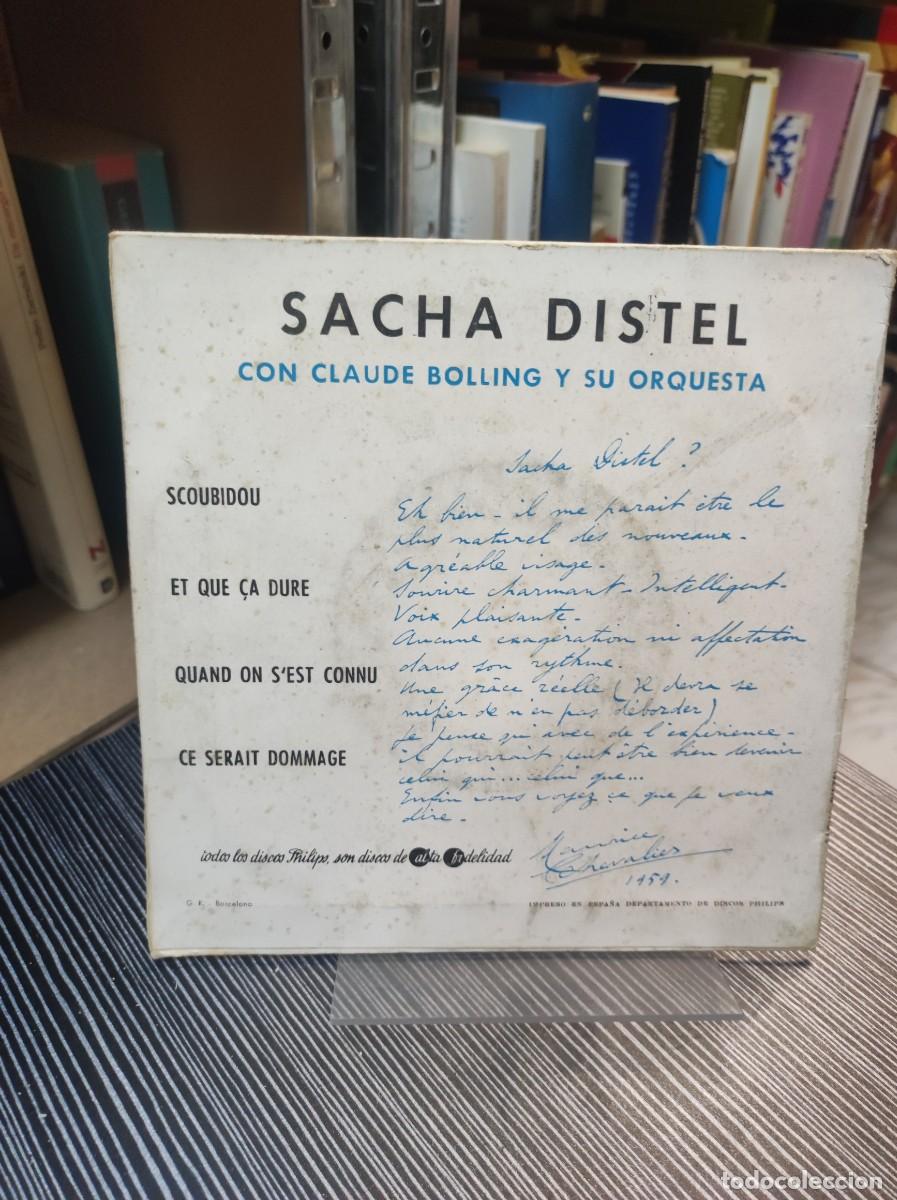 SACHA DISTEL
CON CLAUDE BOLLING Y SU ORQUESTA
SCOUBIDOU
ET QUE ÇA DURE
QUAND ON S'EST CONNU
CE SERAIT DOMMAGE
Sacha Distel ?
Eh bien - il me parait être le
plus naturel des nouveaux -
Agréable visage -
Sourire charmant - Intelligent -
Voix plaisante -
Aucune exagération ni affectation
dans son rythme.
Une grâce réelle (Il devra se
méfier de n'en pas déborder)
Je pense qui avec de l'expérience -
il pourrait peut être bien devenir
celui qui... celui que...
Enfin vous voyez ce que je veux
dire.
Maurice
Chevalier
1959.
todos los discos Philips, son discos de alta fidelidad
G. K. Barcelona
IMPRESO EN ESPAÑA DEPARTAMENTO DE DISCOS PHILIPS
todocoleccion